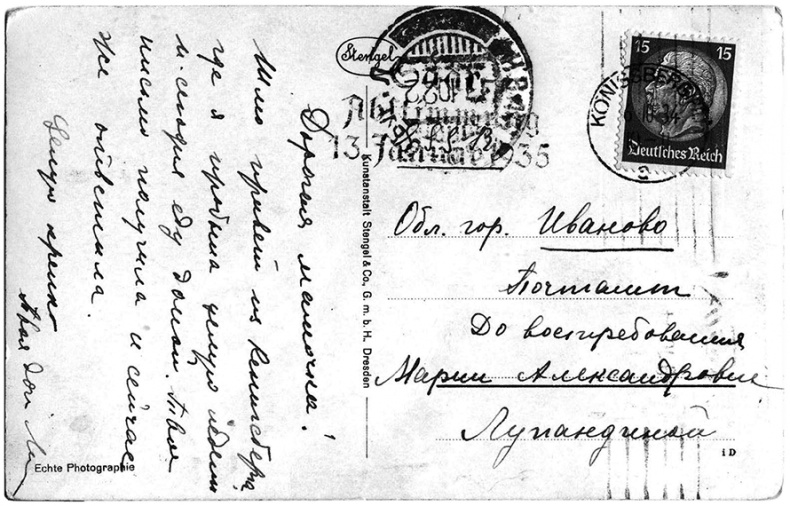 Дорогая мамочка!
Шлю привет из Кенигсберга,
где я пробыла целую неделю
и сегодня еду домой. Твое
письмо получила и сейчас
же ответила.
Целую крепко
Твоя
Echte Photographie
Stengel
Kunstanstalt Stengel & Co., G. m. b. H. Dresden
Saar
Abstimmung
13. Januar 1935
KÖNIGSBERG
15 15
Deutsches Reich
Обл. гор. Иваново
Почтамт
До востребования
Марии Александровне
Лупандиной
1 D